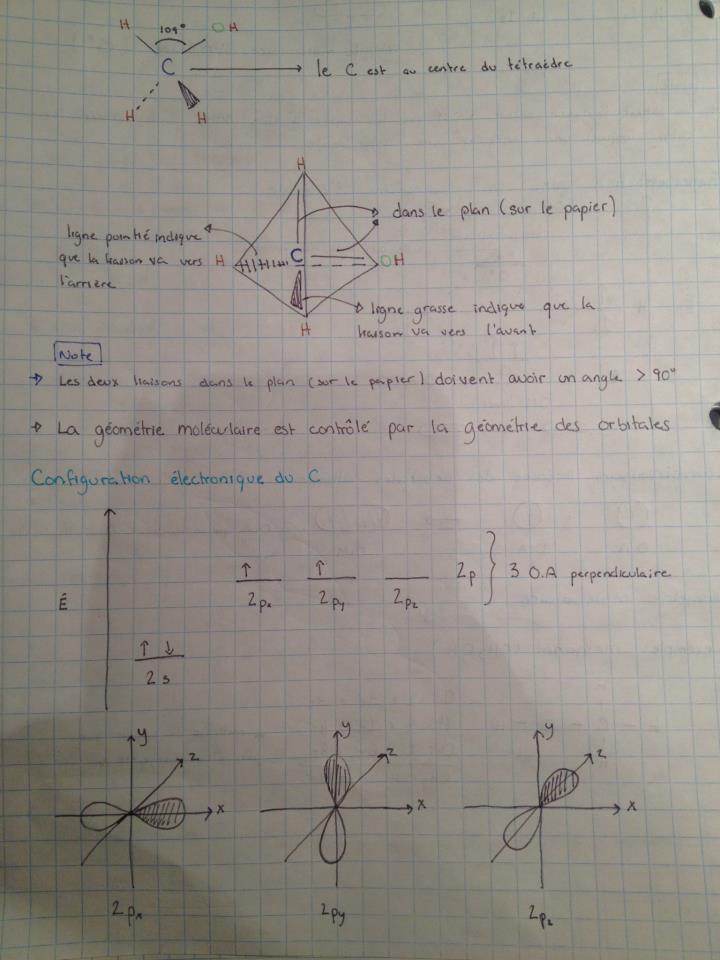 H 109° OH
C le C est au centre du tétraèdre
H H
H
dans le plan (sur le papier)
ligne pointié indique
que la liaison va vers
l'arrière
H C OH
H
ligne grasse indique que la
liaison va vers l'avant
Note
→ Les deux liaisons dans le plan (sur le papier) doivent avoir un angle > 90°
→ La géométrie moléculaire est contrôlé par la géométrie des orbitales
Configuration électronique du C
É
↑ ↑ 2p } 3 O.A perpendiculaire
2px 2py 2pz
↑ ↓
2s
y z x
y z x
y z x
2px 2py 2pz